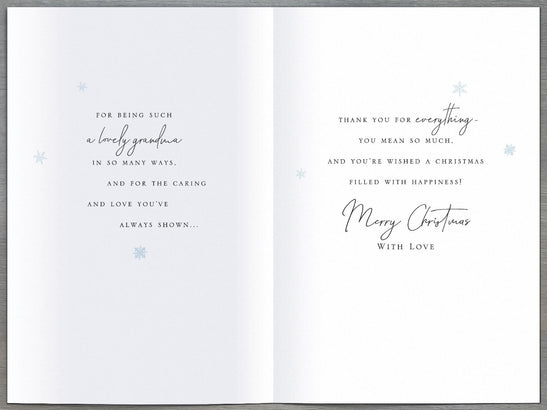 FOR BEING SUCH
a lovely grandma
IN SO MANY WAYS,
AND FOR THE CARING
AND LOVE YOU'VE
ALWAYS SHOWN...
THANK YOU FOR everything-
YOU MEAN SO MUCH,
AND YOU'RE WISHED A CHRISTMAS
FILLED WITH HAPPINESS!
Merry Christmas
WITH LOVE